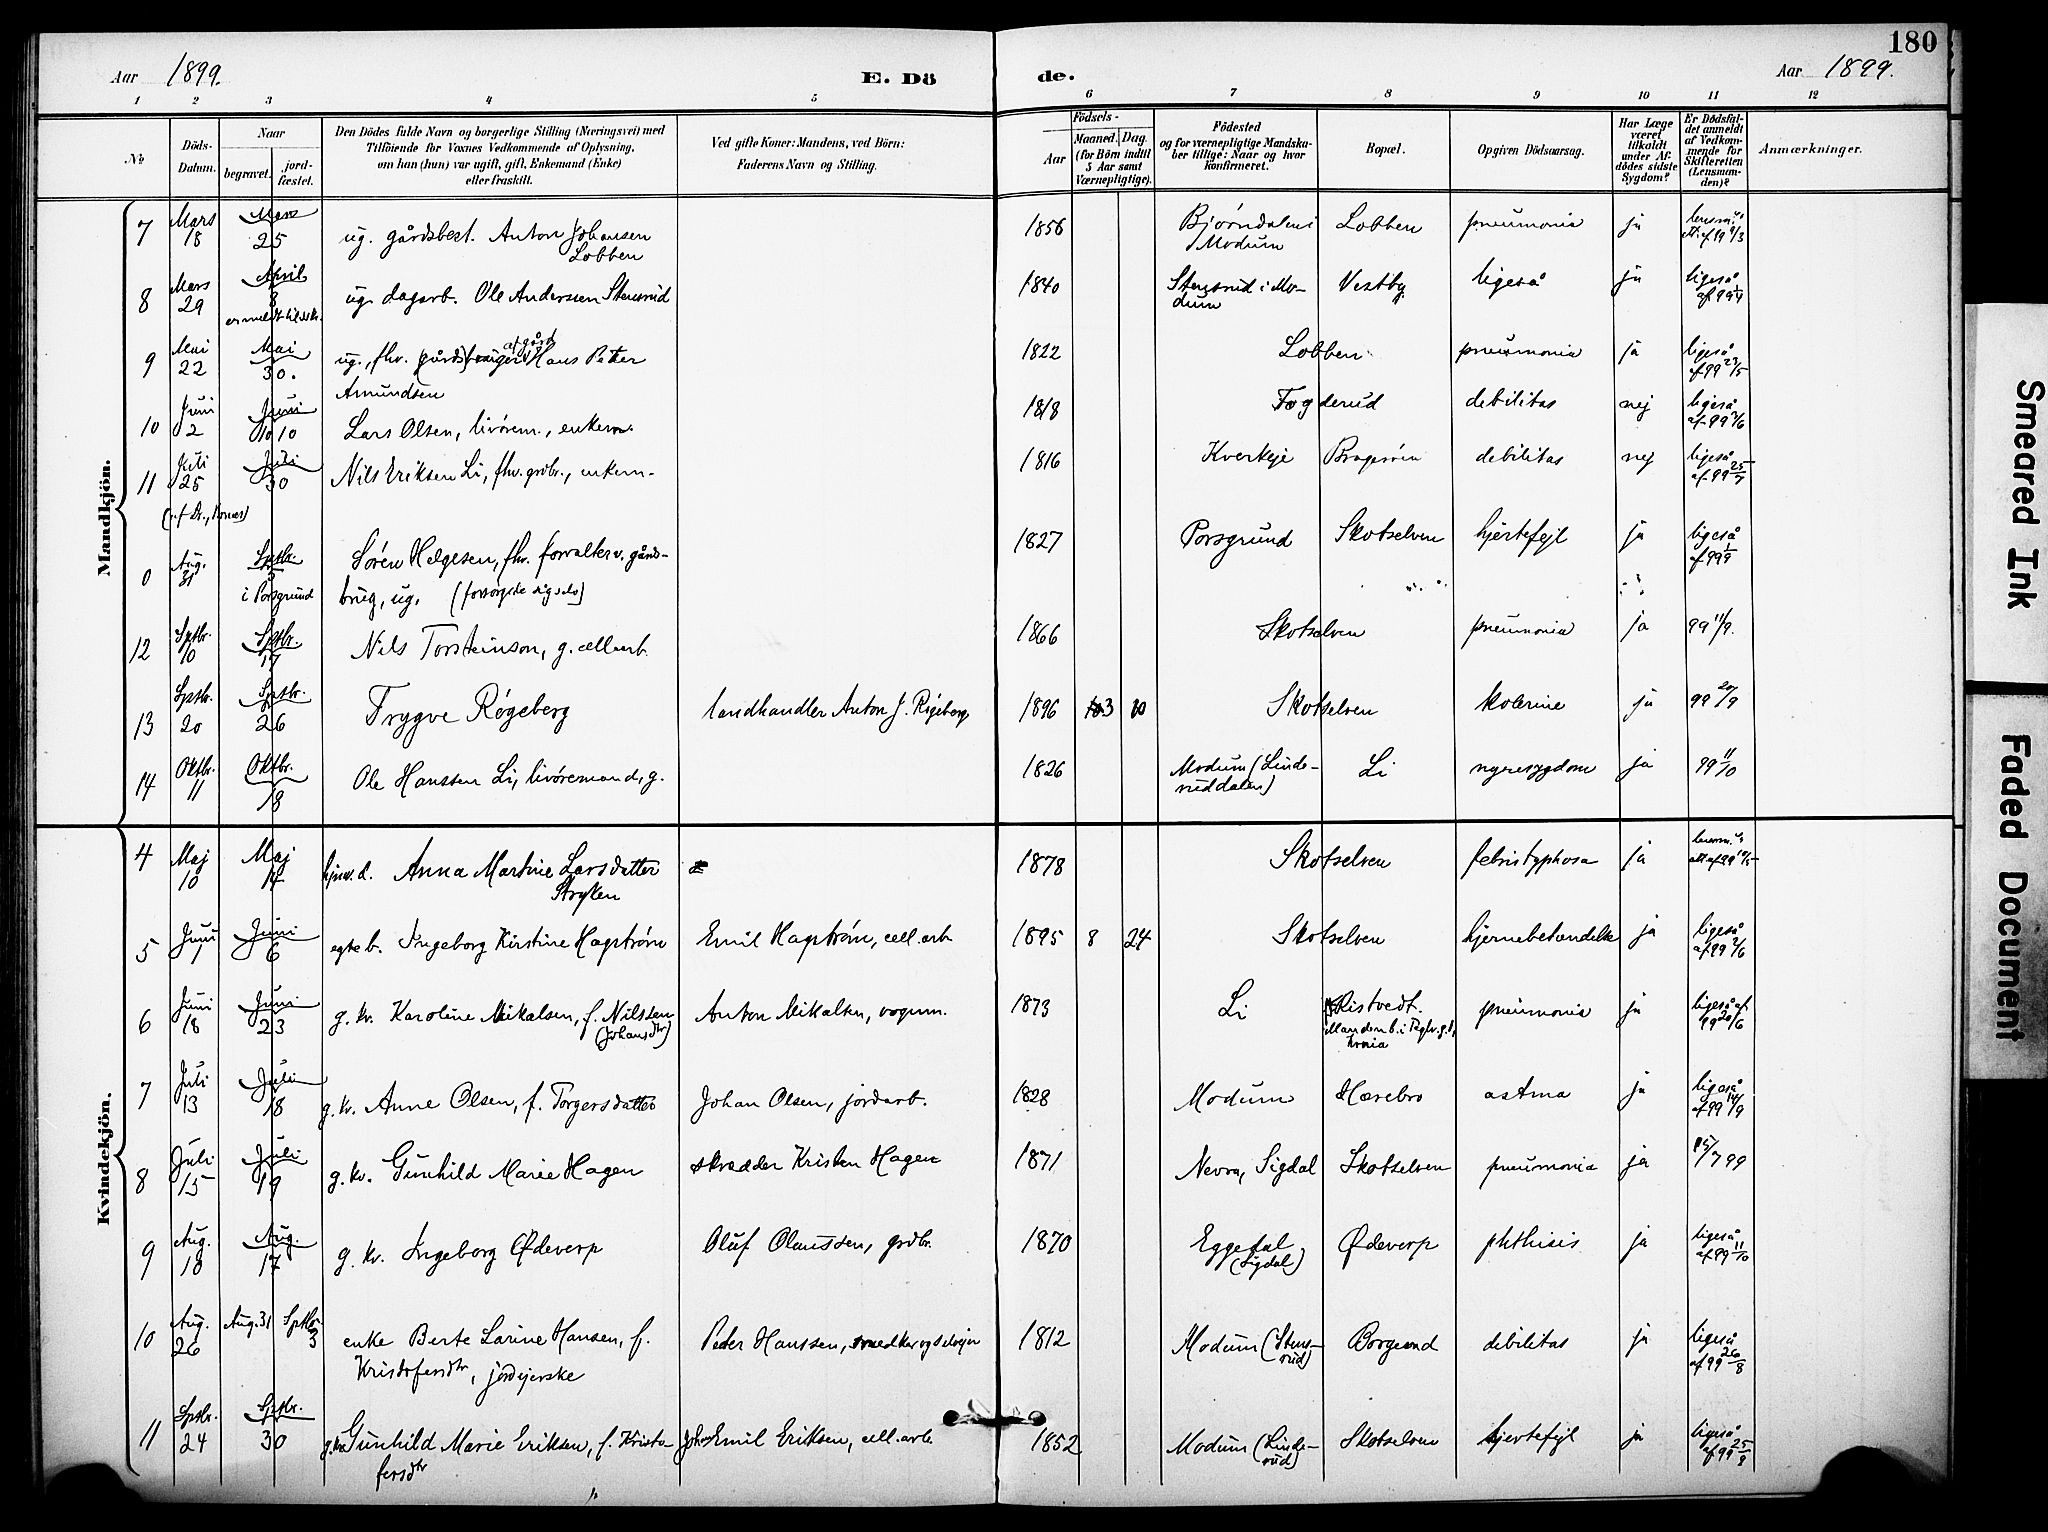 180
Aar 1899.
E. Dö de.
Aar 1899.
1 2 3 4 5 6 7 8 9 10 11 12
№
Döds-Datum.
Naar
begravet.
jord-fæstet.
Den Dödes fulde Navn og borgerlige Stilling (Næringsvei) med
Tilföiende for Voxnes Vedkommende af Oplysning,
om han (hun) var ugift, gift, Enkemand (Enke)
eller fraskilt.
Ved gifte Koner: Mandens, ved Börn:
Faderens Navn og Stilling.
Födsels-
Aar
Maaned. Dag.
(for Börn indtil
5 Aar samt
Værnepligtige).
Födested
og for værnepligtige Mandska-
ber tillige: Naar og hvor
konfirmeret.
Bopæl.
Opgiven Dödsaarsag.
Har Læge
været
tilkaldt
under Af-
dödes sidste
Sygdom?
Er Dödsfal-
det anmeldt
af Vedkom-
mende for
Skifteretten
(Lensman-
den)?
Anmærkninger.
Mandkjön.
7 Mars 18 Mars 25 ug. gårdsbest. Anton Johansen Lobben 1856 Bjørndalen i Modum Lobben pneumonia ja
8 Mars 29 April 8 ug. dagarb. Ole Anderssen Stensrud 1840 Stensrud i Modum Vestby ligeså ja ligeså af 99 1/4
9 Mai 22 Mai 30. ug., fhv. gårdbruger Hans Petter Amundsen 1822 Lobben pneumonia ja ligeså af 99 23/5
10 Juni 2 Juni 10 Lars Olsen, livørem., enkem. 1818 Fogderud debilitas nej ligeså af 99 2/6
11 Juli 25 Juli 30 Nils Eriksen Li, fhv. grdbr., enkem. 1816 Kverkje debilitas nej ligeså af 99 25/7
0 Aug. 31 Sptbr. 5 i Porsgrund Søren Helgesen, fhv. forvalter v. gårds-
brug, ug. (forsørgede sig selv) 1827 Porsgrund Skotselven hjertefejl ja ligeså af 99 1/9
12 Sptbr. 10 Sptbr. 17 Nils Torsteinson, g. cell.arb. 1866 Skotselven pneumonia ja 99 11/9.
13 Sptbr. 20 Sptbr. 26 Trygve Røgeberg landhandler Anton J. Røgeberg 1896 3 10 Skotselven kolerine ja 99 20/9
14 Oktbr. 11 Oktbr. 18 Ole Hanssen Li, livøremand, g. 1826 Modum (Linde-
ruddalen) Li nyresygdom ja 99 11/10
Kvindekjön.
4 Maj 10 Maj 14 hjmv. d. Anna Martine Larsdatter Stryken 1878 Skotselven febris typhosa ja
5 Juni 1 Juni 6 egte b. Ingeborg Kirstine Hagstrøm Emil Hagstrøm, cell.arb. 1895 8 24 Skotselven hjernebetændelse ja ligeså af 99 2/6
6 Juni 18 Juni 23 g. kv. Karoline Mikalsen, f. Nilssen (Johansdtr) Anton Mikalsen, vognm. 1873 Li Kristvedt. pneumonia ja ligeså af 99 20/6
7 Juli 13 Juli 18 g. kv. Anne Olsen, f. Torgersdatter Johan Olsen, jordarb. 1828 Modum Hærebro astma ja ligeså af 99
8 Juli 15 Juli 19 g. kv. Gunhild Marie Hagen skrædder Kristen Hagen 1871 Nevra, Sigdal Skotselven pneumonia ja 15/7 99
9 Aug. 18 Aug. 17 g. kv. Ingeborg Ødeverp Oluf Olaussen, grdbr. 1870 Eggedal (Sigdal) Ødeverp phthisis ja ligeså af 99 11/10
10 Aug. 26 Aug. 31 Sptbr. 3 enke Berte Larine Hansen, f.
Kristofersdtr, jordejerske Peter Hanssen, snedker og selvejer 1812 Modum (Stens-
rud) Borgerud debilitas ja ligeså af 99 26/8
11 Sptbr. 24 Sptbr. 30 g. kv. Gunhild Marie Eriksen, f. Kristo-
fersdtr Johan Emil Eriksen, cell.arb. 1852 Modum (Linde-
rud) Skotselven hjertefejl ja ligeså af 99 25/9
Smeared Ink
Faded Document